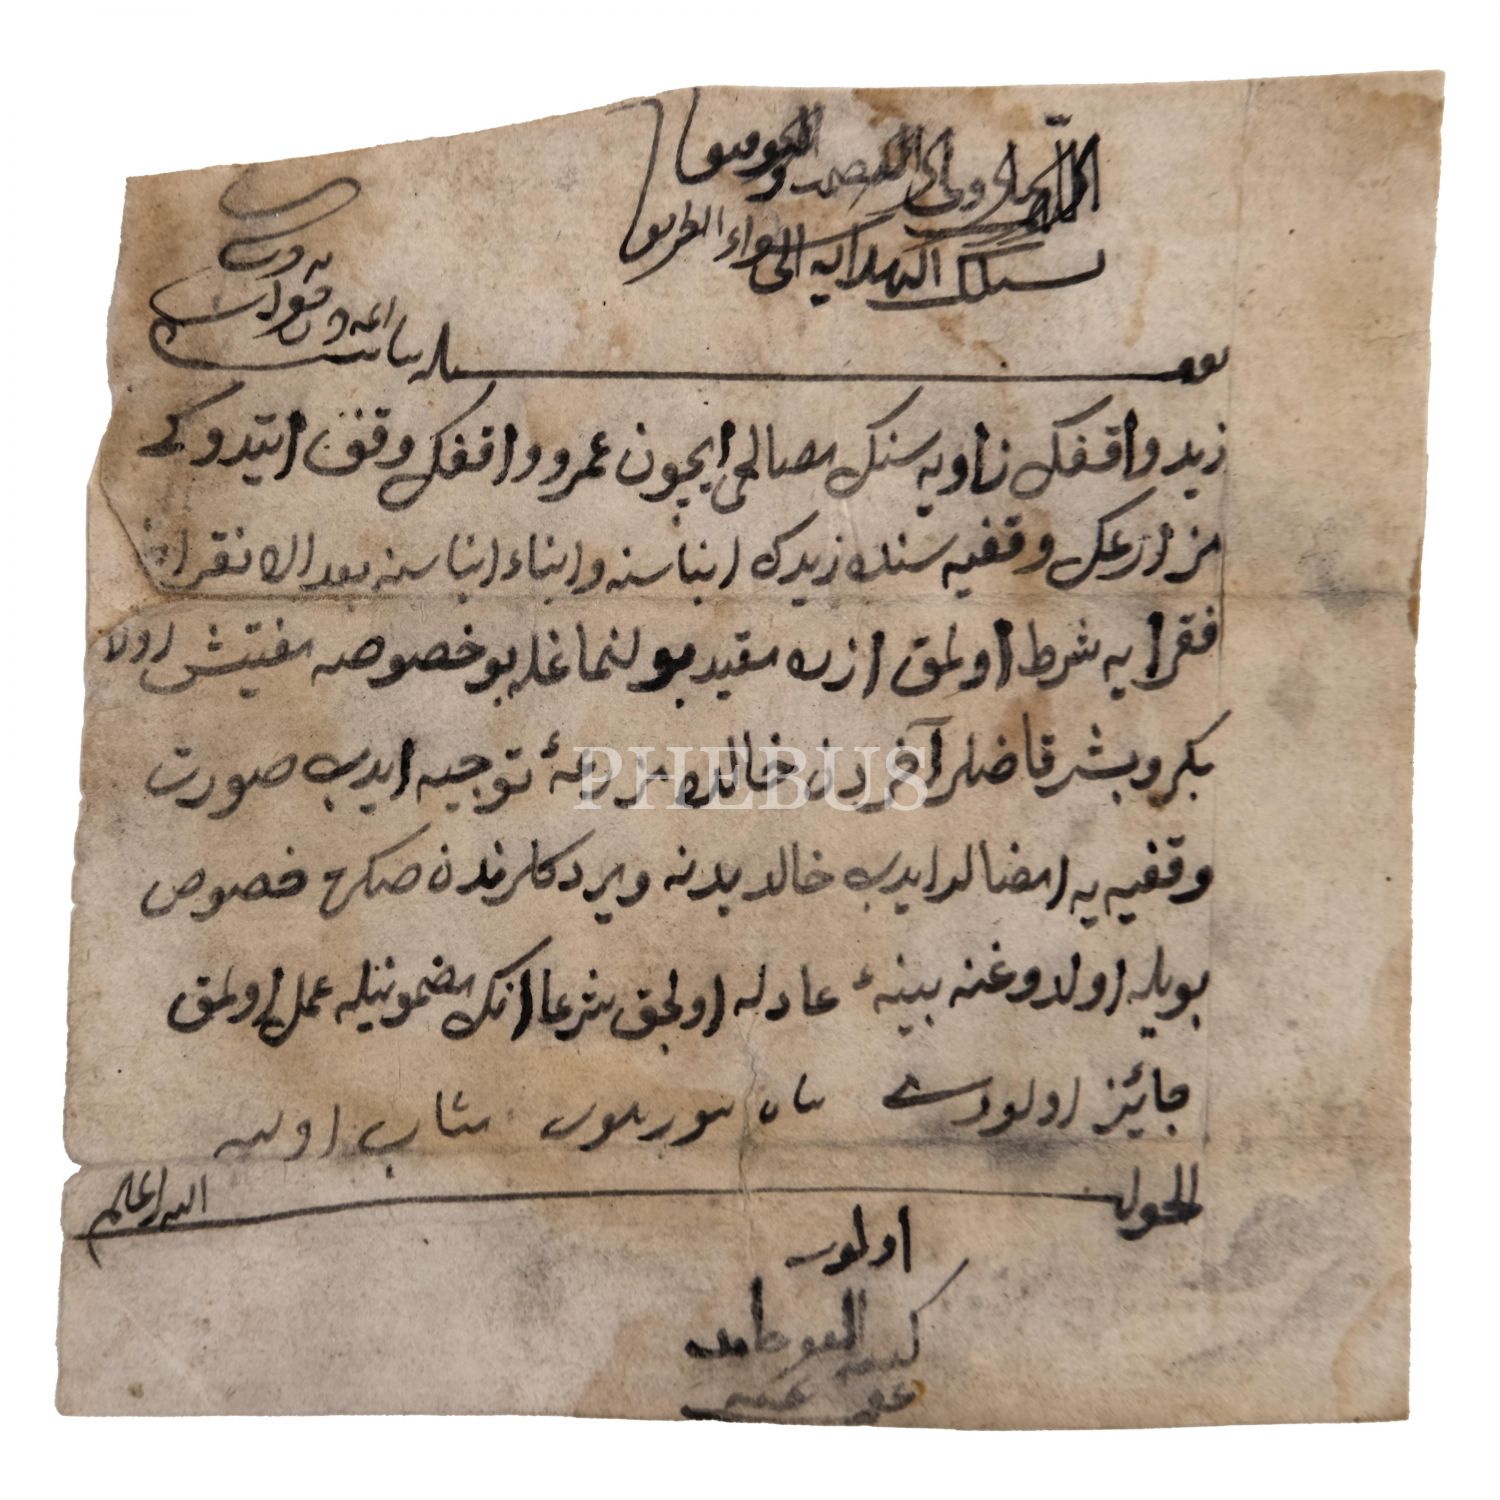 اللهم يا ولي العصمة والتوفيق
نسئلك الهداية الى سواء الطريق
بو مسئله بيانند ائمه دن
زيد واقفك زاويه سنك مصالحى ايچون عمرو واقفك وقف ايتدوكى
مزارعك وقفيه سنده زيدك ابناسنه وابناء ابناسنه بعد الانقراض
فقرايه شرط اولمق ازره مقيد بولنماغله بو خصوصه مفتش اولان
بكر وبشر قاضلر آخردن خالده مزرعۀ توجيه ايدب صورت
وقفيه يه امضالر ايدب خالد يدنه ويردكلرندن صكره خصوص
بويله اولدوغنه بينۀ عادله اولجق شرعا انك مضمونيله عمل اولمق
جائز اولورمى بيان بيوريلوب مثاب اوليه
الجواب الله اعلم
اولور
كتبه الفقير حامد
عفى عنه
PHEBUS